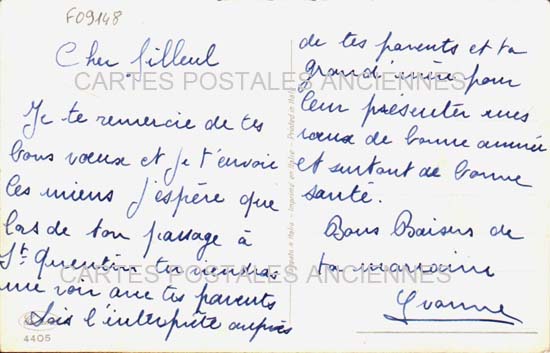 F09148
Cher filleul
Je te remercie de tes
bons vœux et je t'envoie
les miens j'espère que
lors de ton passage à
St Quentin tu viendras
me voir avec tes parents
Sois l'interprète auprès
4405
de tes parents et ta
grand'mère pour
leur présenter mes
vœux de bonne année
et surtout de bonne
santé.
Bons Baisers de
ta marraine
Yvonne
Printed in Italy
Imprimé en Italie
CARTES POSTALES ANCIENNES
CARTES POSTALES ANCIENNES